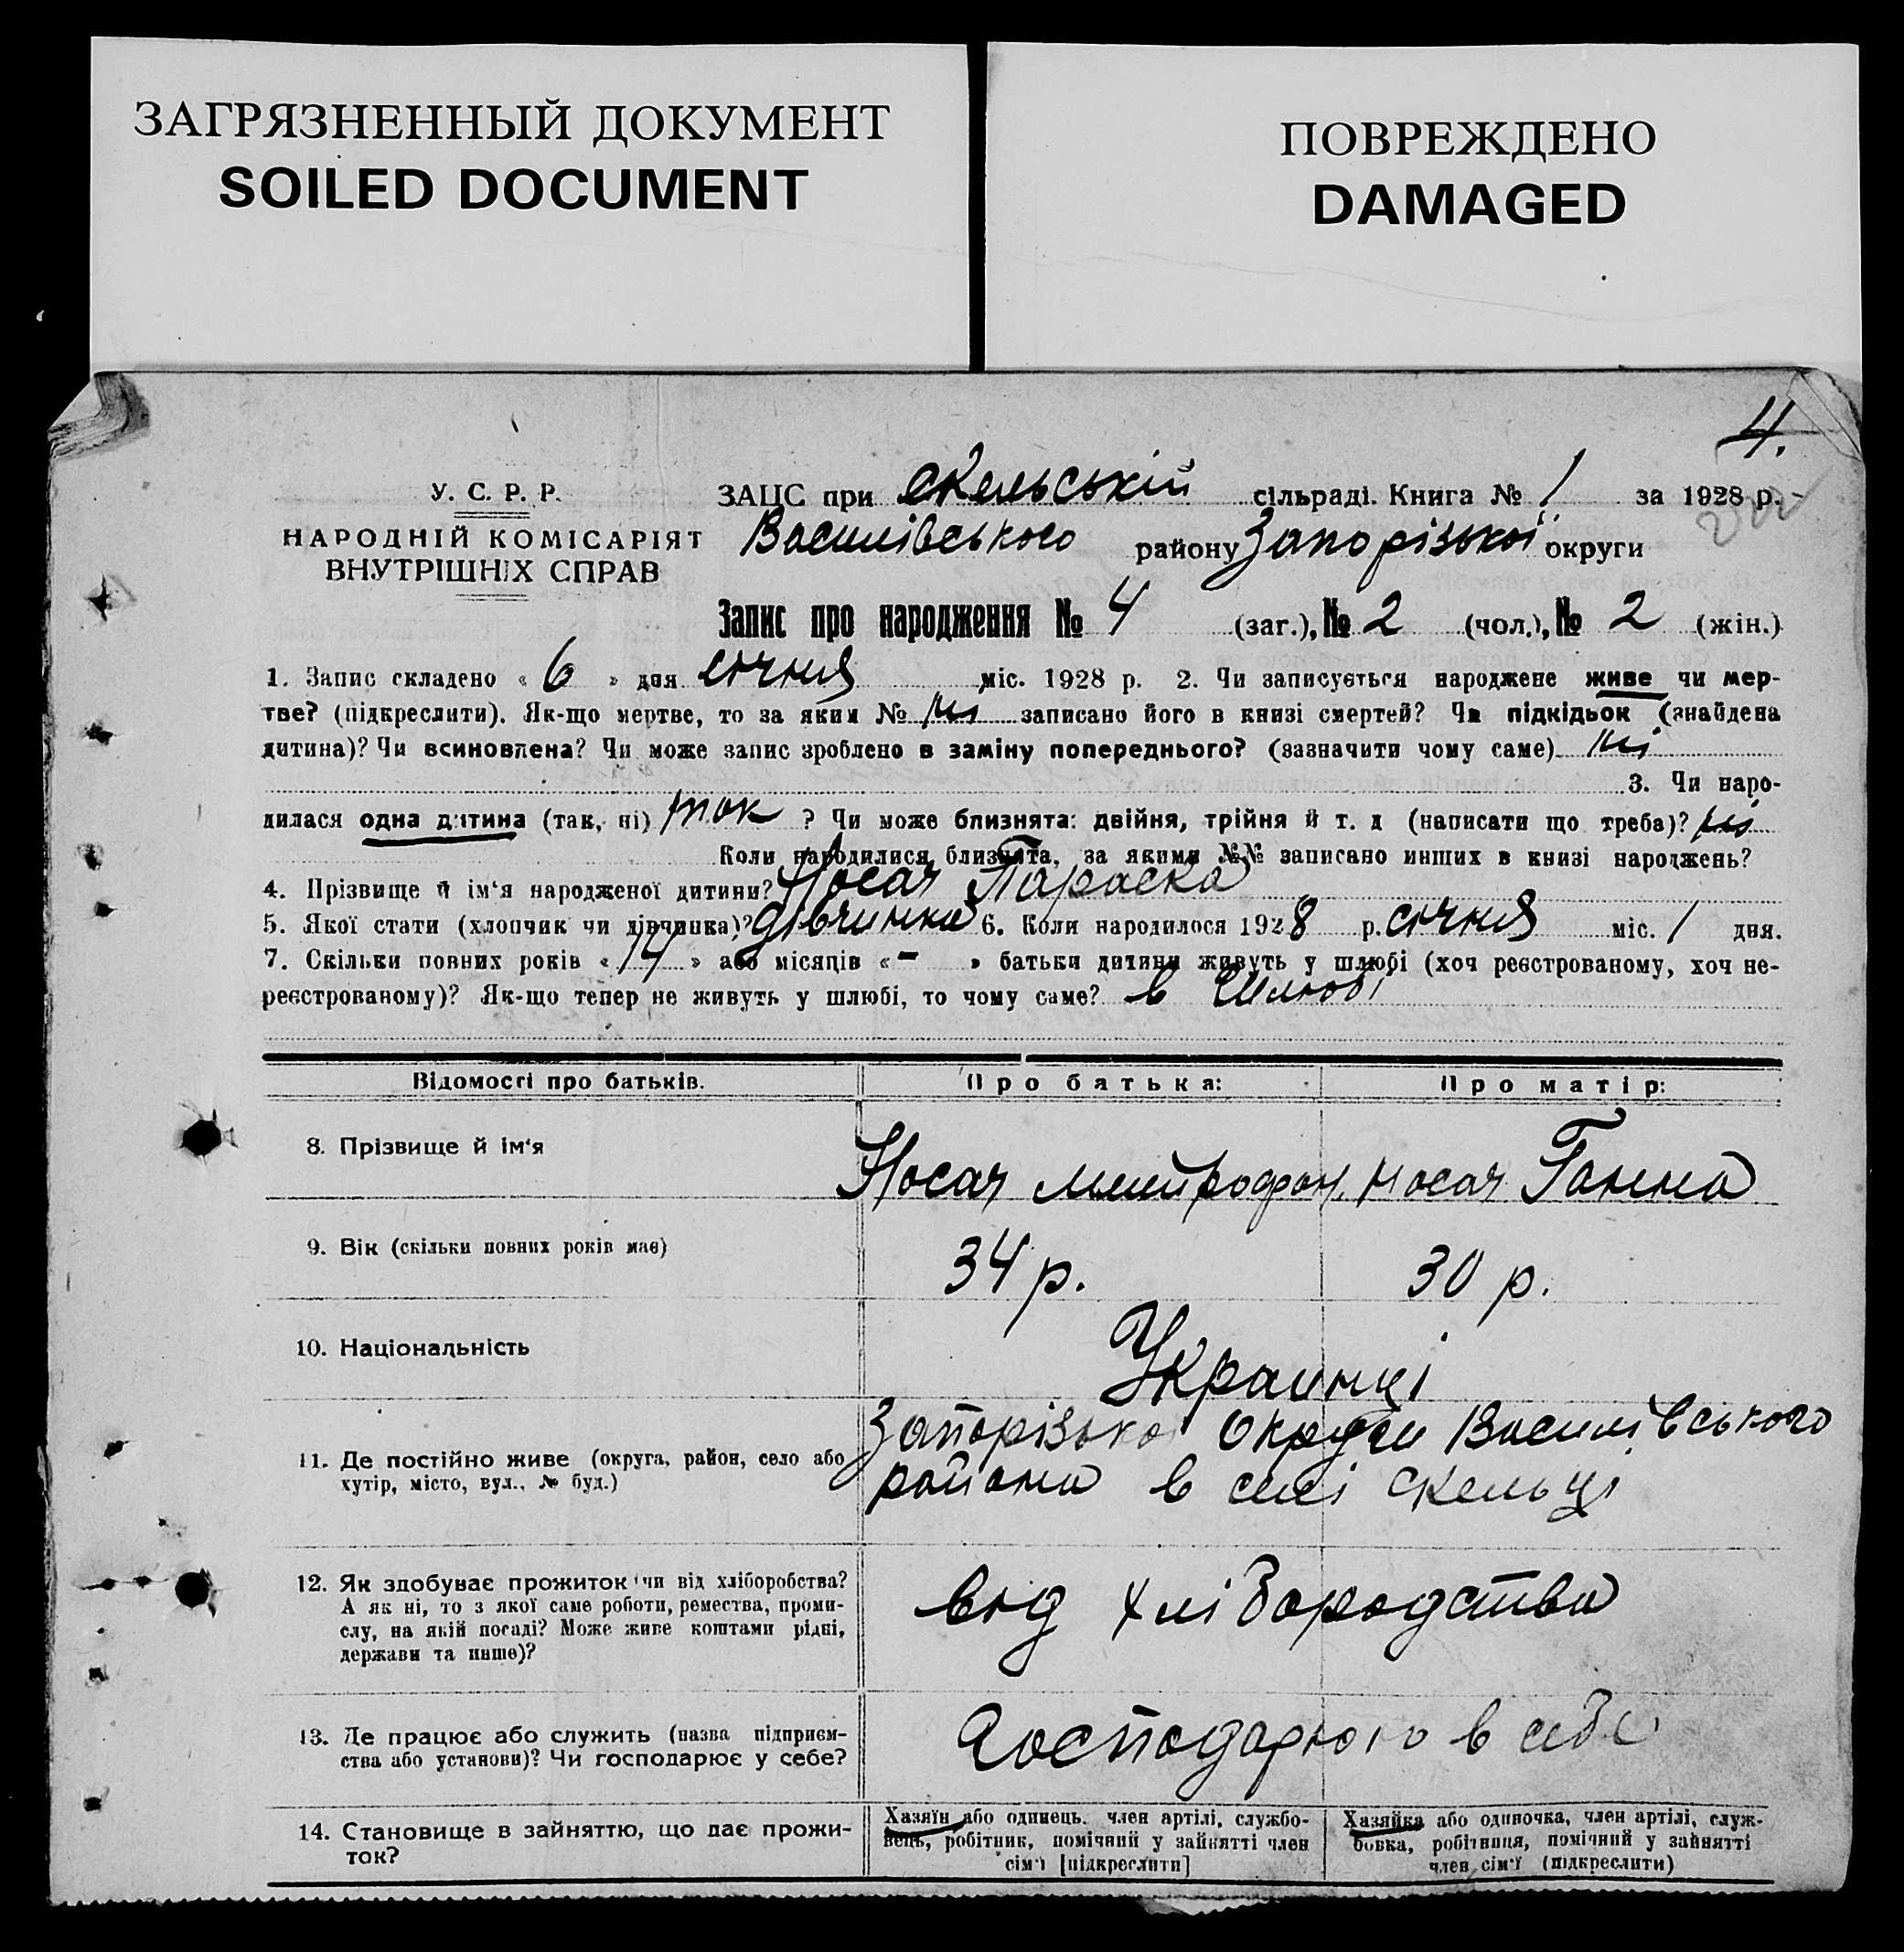 ЗАГРЯЗНЕННЫЙ ДОКУМЕНТ
SOILED DOCUMENT
ПОВРЕЖДЕНО
DAMAGED
4.
У. С. Р. Р.
НАРОДНІЙ КОМІСАРІЯТ
ВНУТРІШНІХ СПРАВ
ЗАЦС при Скельській сільраді. Книга № 1 за 1928 р.
Василівського району Запорізької округи
Запис про народження № 4 (заг.), № 2 (чол.), № 2 (жін.)
1. Запис складено « 6 » дня січня міс. 1928 р. 2. Чи записується народжене живе чи мер-
тве? (підкреслити). Як-що мертве, то за яким № ні записано його в книзі смертей? Чи підкідьок (знайдена
дитина)? Чи всиновлена? Чи може запис зроблено в заміну попереднього? (зазначити чому саме) ні
3. Чи наро-
дилася одна дитина (так, ні) так ? Чи може близнята: двійня, трійня й т. д (написати що треба)? ні
Коли народилися близнята, за якими №№ записано инших в книзі народжень?
4. Прізвище й ім'я народженої дитини? Носач Параска
5. Якої стати (хлопчик чи дівчинка)? дівчинка 6. Коли народилося 1928 р. січня міс. 1 дня.
7. Скільки повних років « 14 » або місяців « - » батьки дитини живуть у шлюбі (хоч реєстрованому, хоч не-
реєстрованому)? Як-що тепер не живуть у шлюбі, то чому саме? в Шлюбі
Відомості про батьків. Про батька: Про матір:
8. Прізвище й ім'я Носач Митрофан. Носач Ганна
9. Вік (скільки повних років має) 34 р. 30 р.
10. Національність Украинці
11. Де постійно живе (округа, район, село або
хутір, місто, вул., № буд.)
Запорізької Округи Василівського
района в селі Скельці
12. Як здобуває прожиток чи від хліборобства?
А як ні, то з якої саме роботи, ремества, проми-
слу, на якій посаді? Може живе коштами рідні,
держави та инше)?
від хлібородства
13. Де працює або служить (назва підприєм-
ства або установи)? Чи господарює у себе?
Господарюю в себе
14. Становище в зайняттю, що дає прожи-
ток?
Хазяїн або одинець. член артілі, службо-
вець, робітник, помічний у зайнятті член
сім'ї [підкреслити]
Хазяйка або одиночка, член артілі, служ-
бовка, робітниця, помічний у зайнятті
член сім'ї (підкреслити)